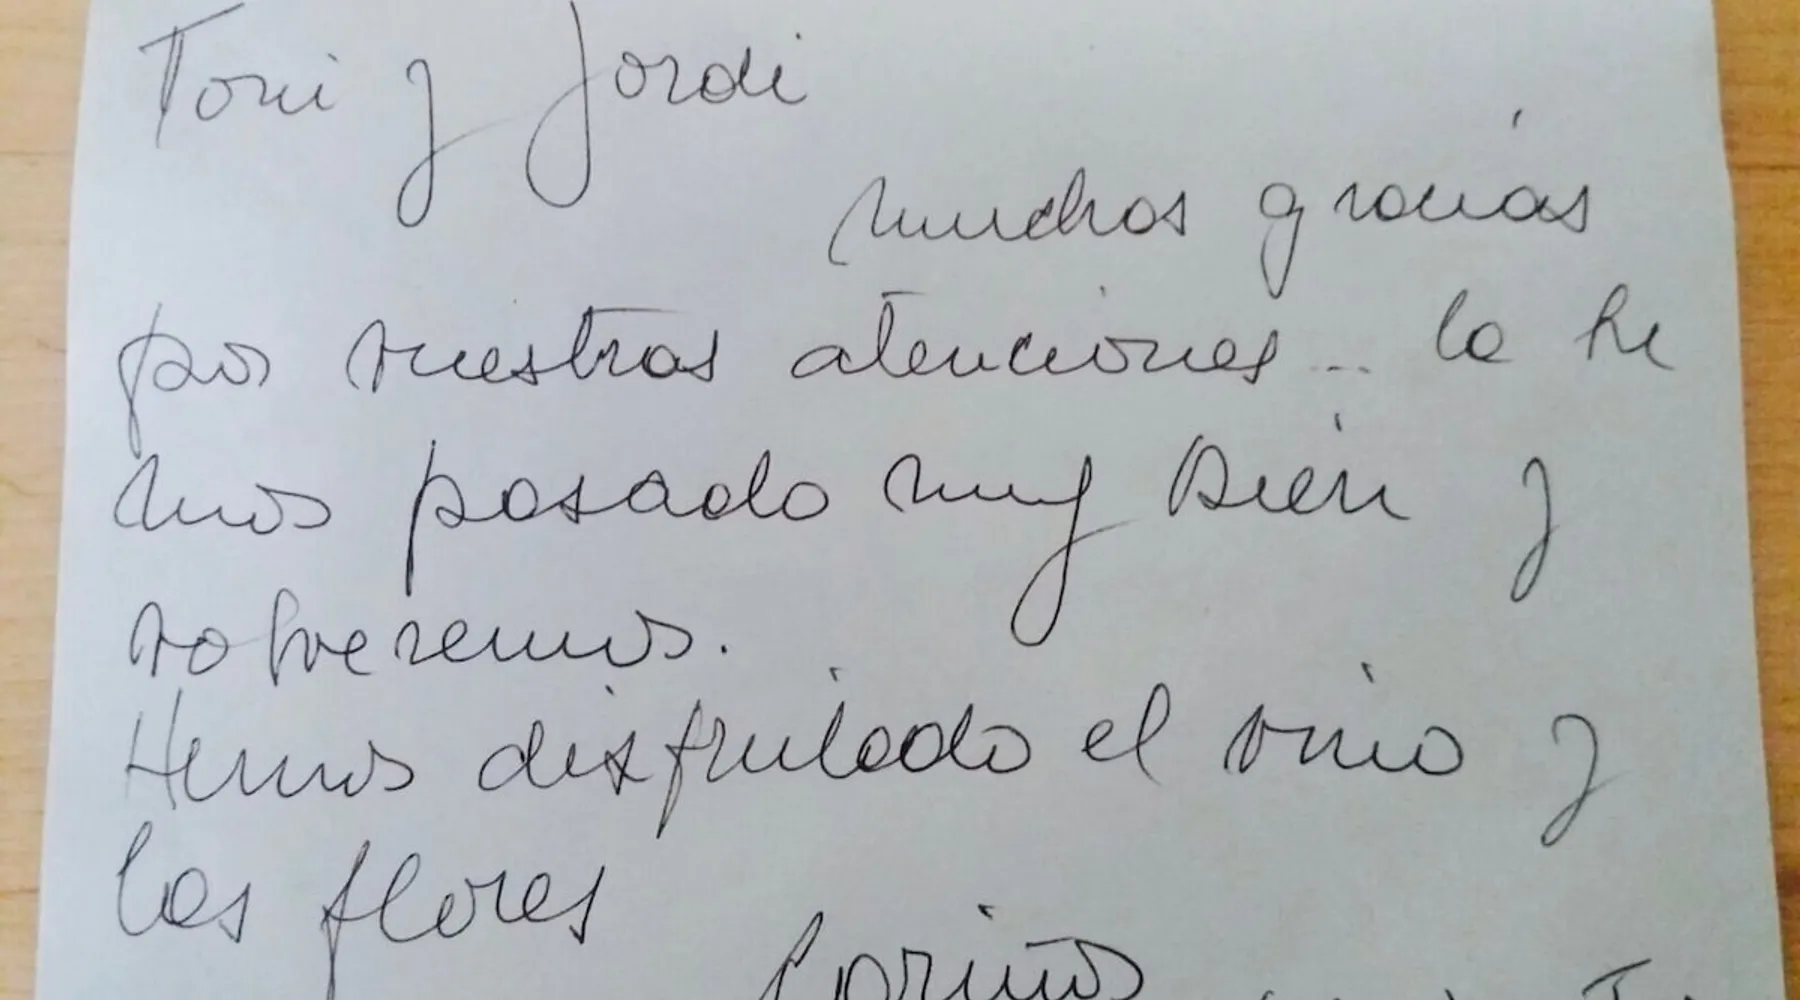 Toni y Jordi
muchas gracias
por vuestras atenciones... lo he
mos pasado muy bien y
volveremos.
Hemos disfrutado el vino y
las flores
Cariños